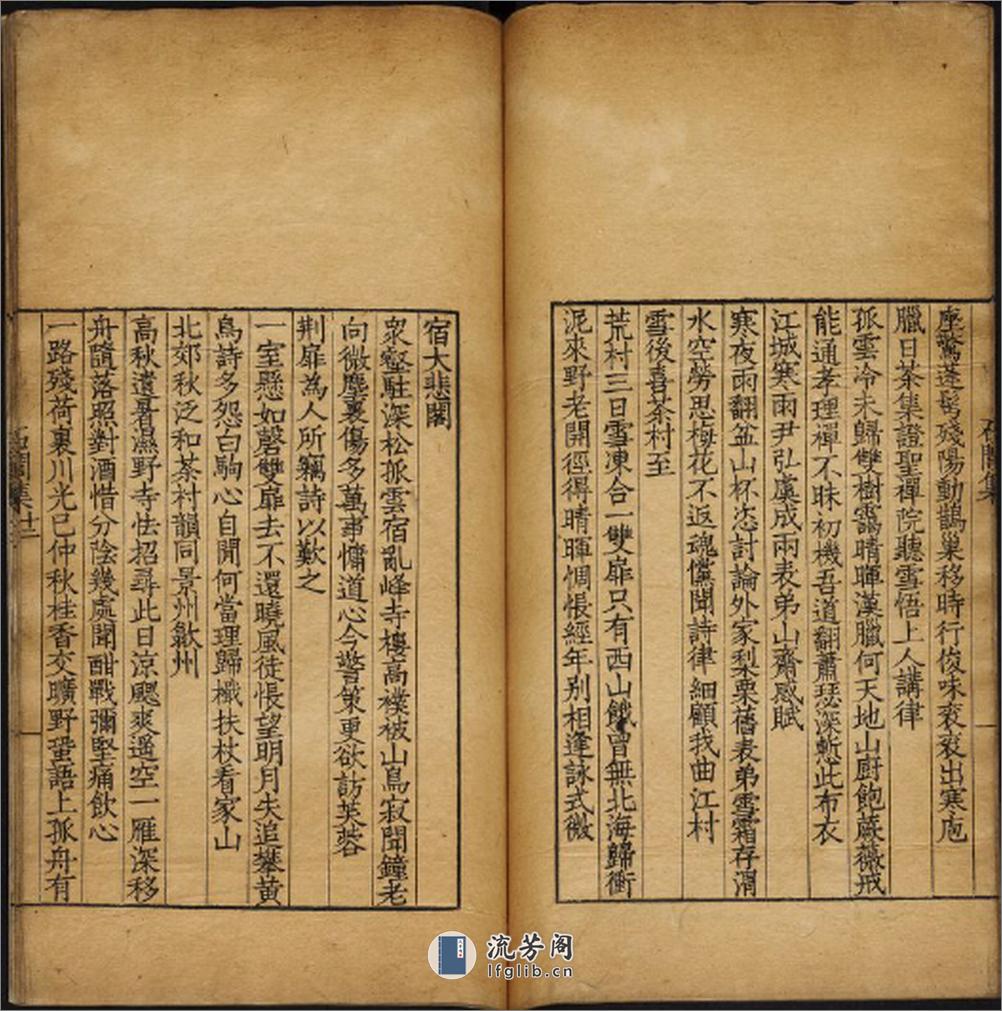 座驚蓬髩殘陽動鵲巢移時行俊味衮衮出寒庖
臘日茶集證聖禪院聽雪悟上人講律
孤雲冷未歸雙樹靄晴暉漢臘何天地山廚飽蕨薇戒
能通孝理禪不昧初機吾道翻蕭瑟深慙此布衣
江城寒雨尹弘虞成雨表弟山齋感賦
寒夜雨翻盆山杯恣討論外家梨栗舊表弟雪霜存渭
水空勞思梅花不返魂儻聞詩律細顧我曲江村
雪後喜茶村至
荒村三日雪凍合一雙扉只有西山餓曾無北海歸衝
泥來野老開徑得晴暉惆悵經年別相逢詠式微
石閭集
宿大悲閣
衆壑駐深松孤雲宿亂峰寺樓高襆被山鳥寂聞鐘老
向微塵裏傷多萬事慵道心今警策更欲訪芙蓉
荆扉為人所竊詩以歎之
一室懸如磬雙扉去不還曉風徒悵望明月失追攀黃
鳥詩多怨白駒心自閒何當理歸檝扶杖看家山
北郊秋泛和茶村韻同景州歙州
高秋遺暑濕野寺怯招尋此日涼颸爽遥空一雁深移
舟隨落照對酒惜分陰幾處聞酣戰彌堅痛飲心
一路殘荷裏川光已仲秋桂香交曠野蛩語上孤舟有
石閭集 廿二
流芳阁
lfglib.cn